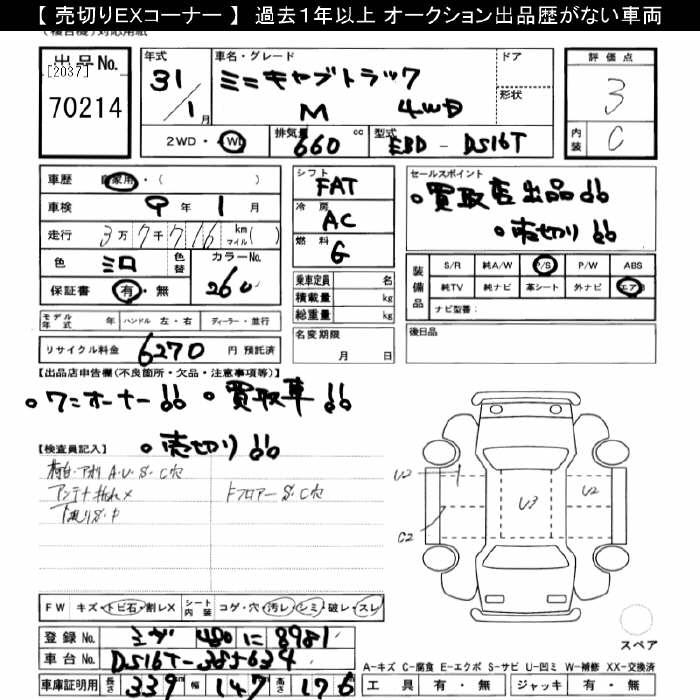 【 売切りEXコーナー 】 過去1年以上 オークション出品歴がない車両
出品No.
[2037]
70214
年式
31/1月
車名・グレード
ミニキャブトラック
M 4WD
ドア
形状
2WD・4WD
排気量 660 cc
型式 EBD - DS16T
評価点
3
内装 C
車歴 自家用・( )
車検 9年 1月
走行 3万7千716 km マイル( )
色 シロ 色替 カラーNo. 260
保証書 有・無
モデル年式 年 ハンドル 左・右 ディーラー・並行
リサイクル料金 6270 円 預託済
シフト FAT
冷房 AC
燃料 G
乗車定員 名
積載量 kg
総重量 kg
名変期限
月 日
セールスポイント
。買取店出品!!
。売切り!!
装備品
S/R 純A/W P/S P/W ABS
純TV 純ナビ 革シート 外ナビ エアB
ナビ型番:
後日品
【出品店申告欄(不良箇所・欠品・注意事項等)】
。ワンオーナー!! 。買取車!!
。売切り!!
【検査員記入】
A・U・S・C穴
アンテナ
下廻りS・P
ドフロアー S・C穴
U2
C2
U3
U2
FW キズ・トビ石・割レX シート内装 コゲ・穴・汚レ・シミ・破レ・スレ
登録No. 480 に 8981
車台No. DS16T-385634
車庫証明用 長さ 339 幅 147 高さ 176
スペア
A-キズ C-腐食 E-エクボ S-サビ U-凹ミ W-補修 XX-交換済
工具 有・無 ジャッキ 有・無